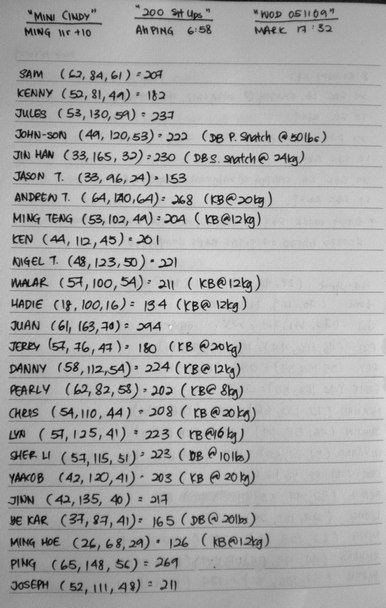 "MINI CINDY" "200 Sit Ups" "WOD 051109"
MING 11r +10 AH PING 6:58 MARK 17:32
SAM (62, 84, 61) = 207
KENNY (52, 81, 49) = 182
JULES (53, 130, 59) = 237
JOHN-SON (49, 120, 53) = 222 (DB P. Snatch @ 50lbs)
JIN HAN (33, 165, 32) = 230 (DB S. Snatch @ 24kg)
JASON T. (33, 96, 24) = 153
ANDREW T. (64, 140, 64) = 268 (KB @ 20kg)
MING TENG (53, 102, 49) = 204 (KB @ 12kg)
KEN (44, 112, 45) = 201
NIGEL T. (48, 123, 50) = 221
MALAR (57, 100, 54) = 211 (KB @ 12kg)
HADIE (18, 100, 16) = 134 (KB @ 12kg)
JUAN (61, 163, 70) = 294
JERRY (57, 76, 47) = 180 (KB @ 20kg)
DANNY (58, 112, 54) = 224 (KB @ 12kg)
PEARLY (62, 82, 58) = 202 (KB @ 8kg)
CHRIS (54, 110, 44) = 208 (KB @ 20kg)
LYN (57, 125, 41) = 223 (KB @ 16kg)
SHER LI (57, 115, 51) = 223 (DB @ 10lbs)
YAACOB (42, 120, 41) = 203 (KB @ 20kg)
JINN (42, 135, 40) = 217
YE KAR (37, 87, 41) = 165 (DB @ 20lbs)
MING HOE (26, 68, 29) = 126 (KB @ 12kg)
PING (65, 148, 56) = 269
JOSEPH (52, 111, 48) = 211